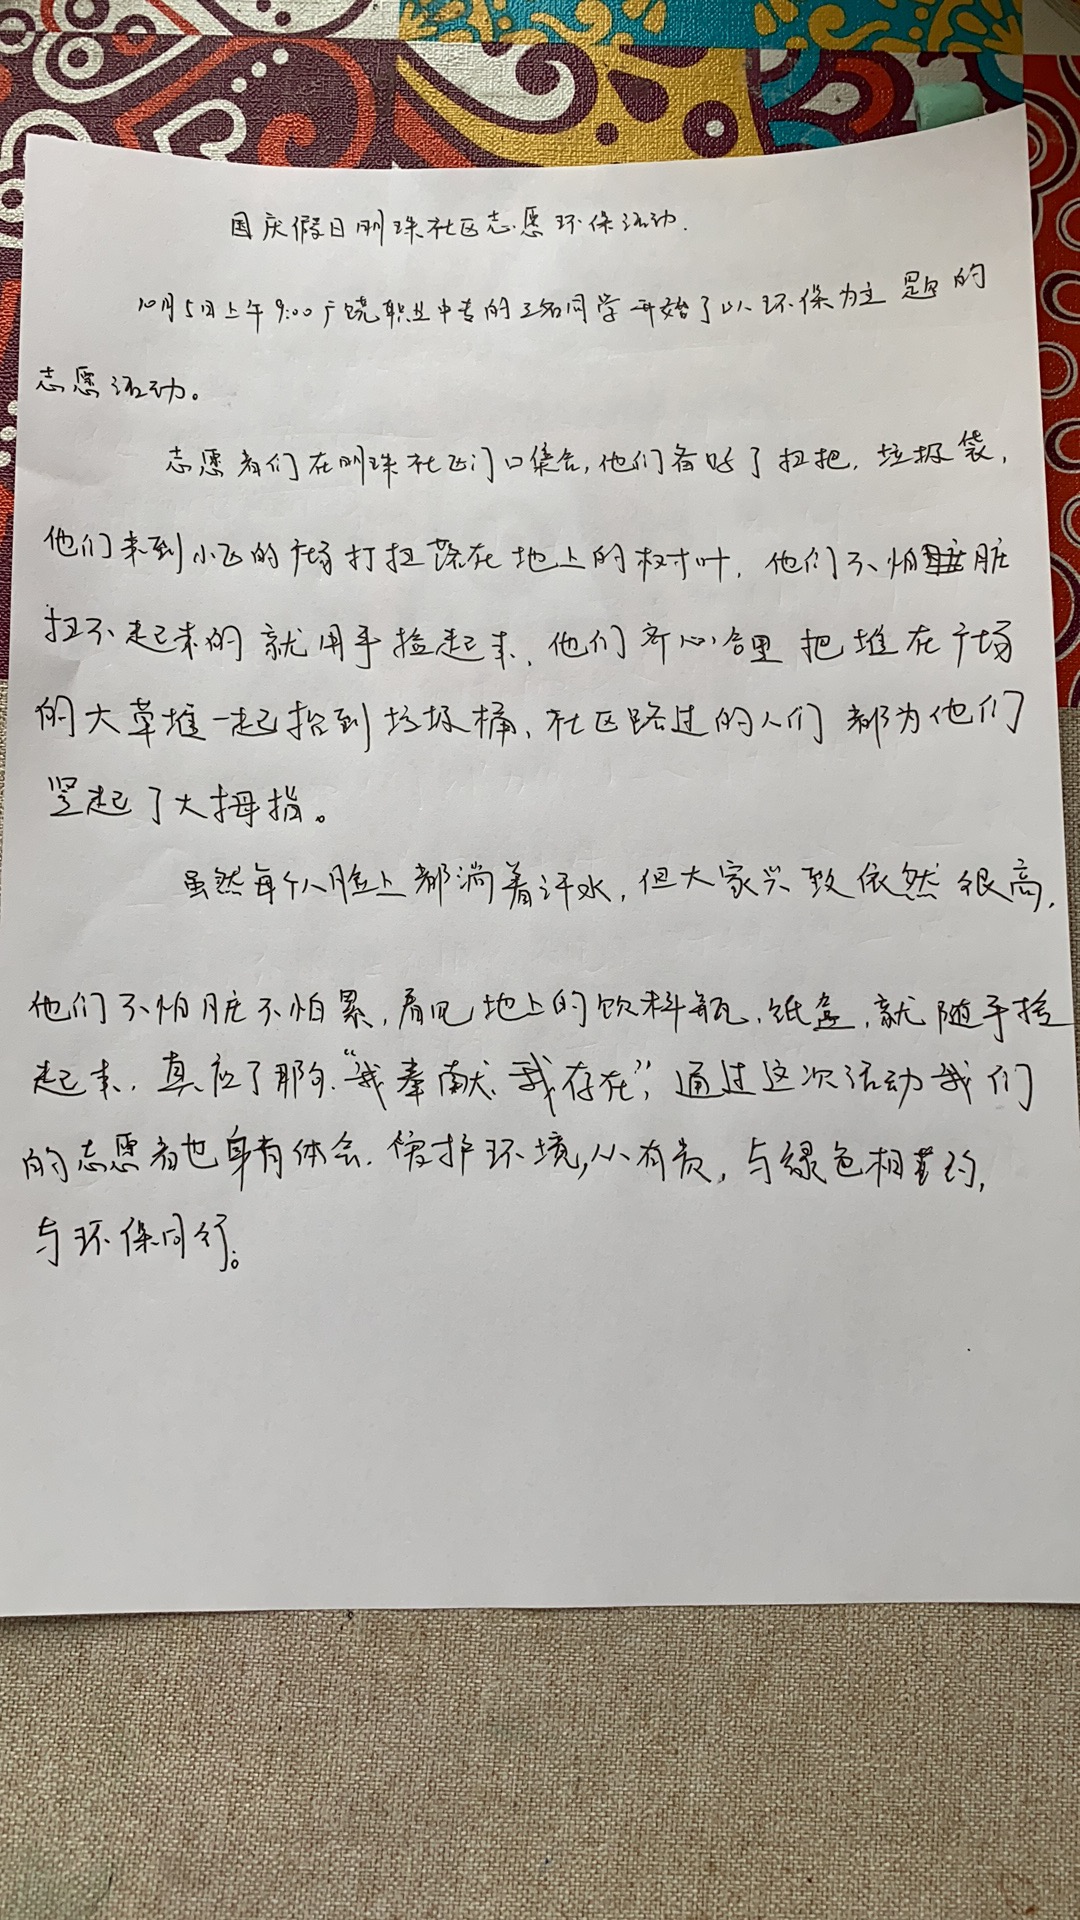 国庆假日明珠社区志愿环保活动.
10月5日上午9:00广饶职业中专的三名同学开始了以环保为主题的
志愿活动。
志愿者们在明珠社区门口集合,他们备好了扫把,垃圾袋,
他们来到小区的广场打扫落在地上的树叶,他们不怕脏
扫不起来的就用手捡起来,他们齐心合里把堆在广场
的大草堆一起抬到垃圾桶,社区路过的人们都为他们
竖起了大拇指。
虽然每个人脸上都淌着汗水,但大家兴致依然很高,
他们不怕脏不怕累,看见地上的饮料瓶,纸盒,就随手捡
起来,真应了那句,“我奉献,我存在”,通过这次活动我们
的志愿者也身有体会,保护环境,人人有责,与绿色相约,
与环保同行。